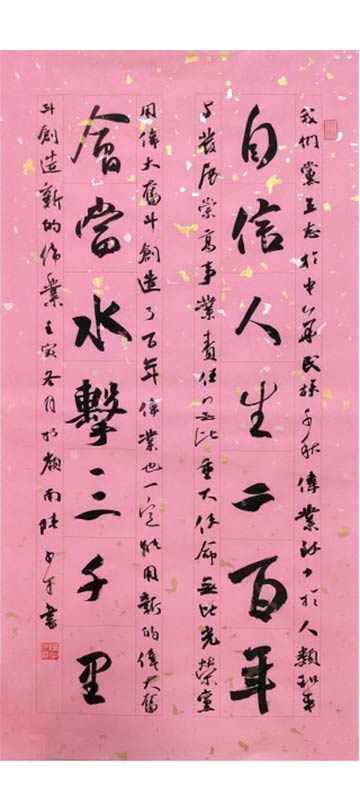 我們黨立志於中華民族千秋偉業致力於人類和平
自信人生二百年
与發展崇高事業責任无比重大使命無比光榮黨
用偉大奮斗創造了百年偉業也一定能用新的偉大奮
會當水擊三千里
斗創造新的偉業壬寅冬月於嶺南陳書